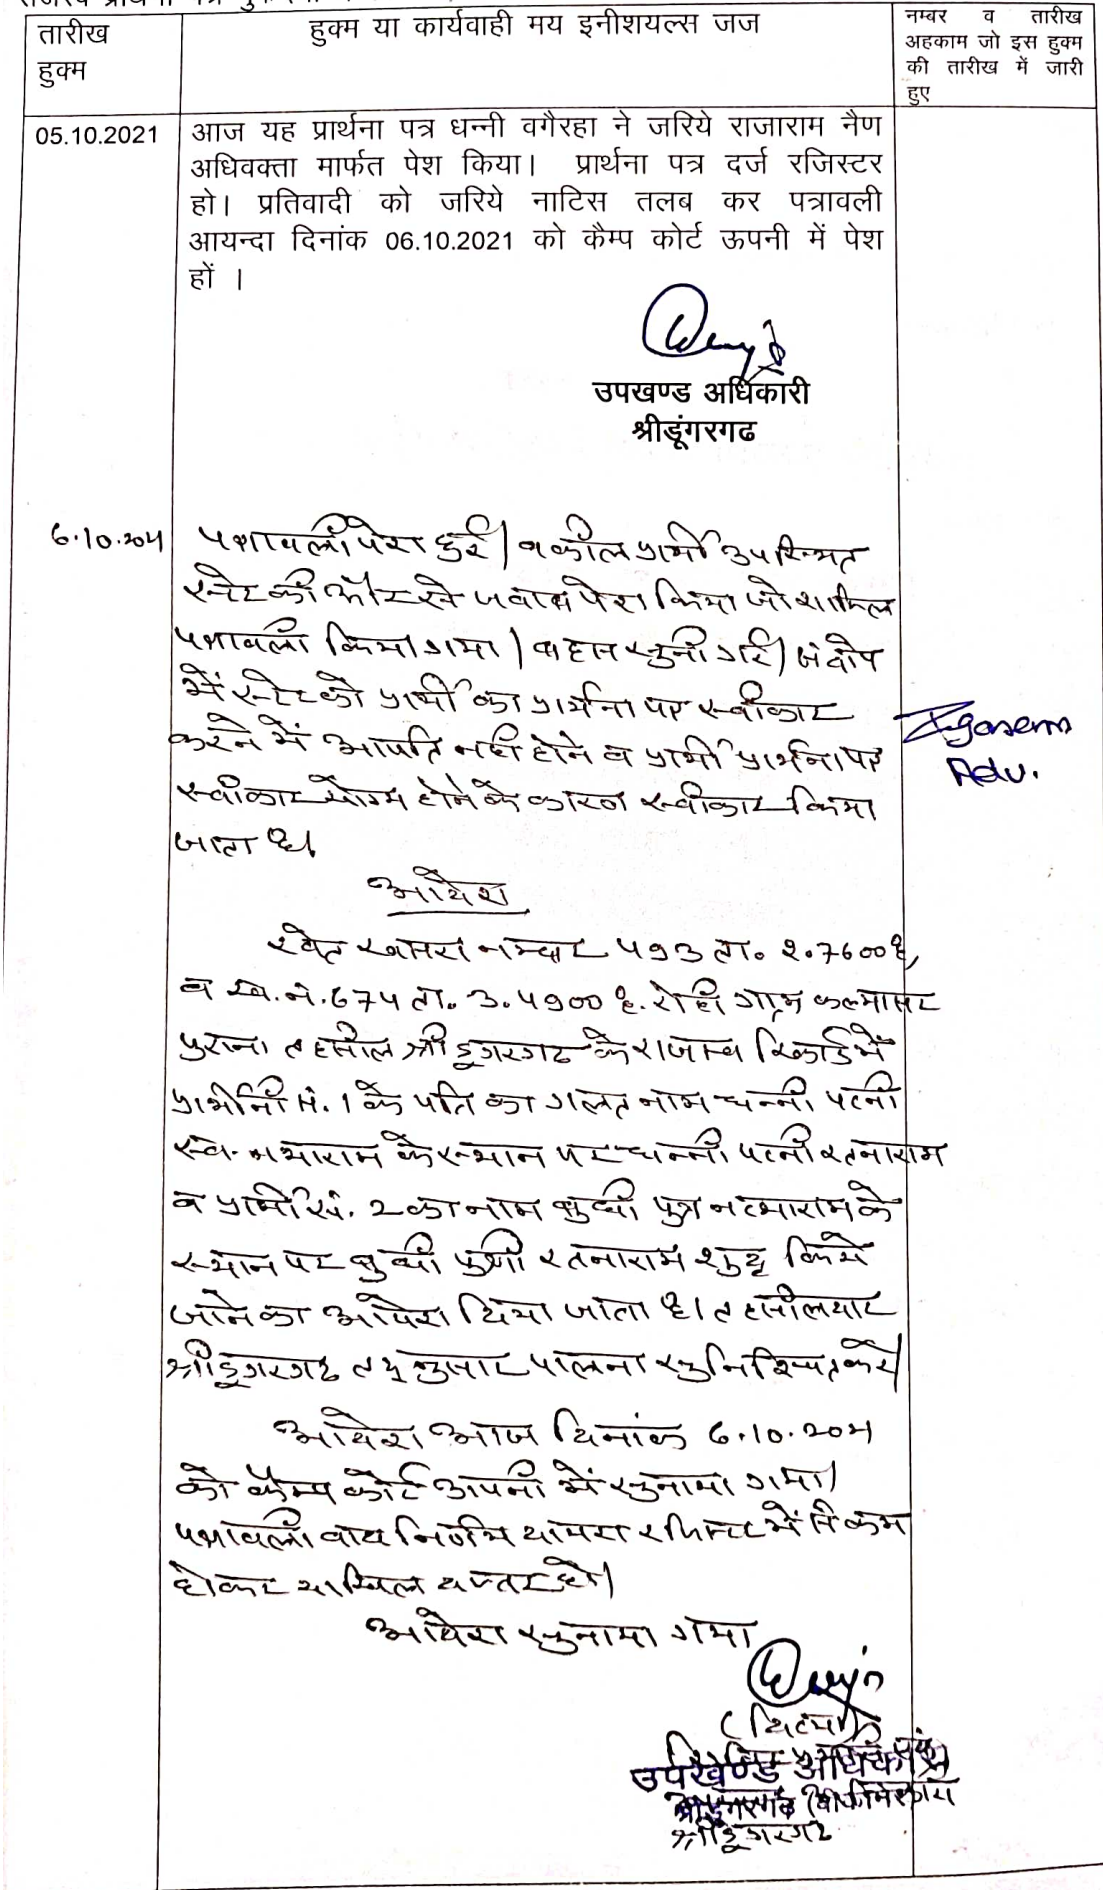 तारीख हुक्म
हुक्म या कार्यवाही मय इनीशयल्स जज
नम्बर व तारीख
अहकाम जो इस हुक्म
की तारीख में जारी
हुए
05.10.2021
आज यह प्रार्थना पत्र धन्नी वगैरहा ने जरिये राजाराम नैण
अधिवक्ता मार्फत पेश किया। प्रार्थना पत्र दर्ज रजिस्टर
हो। प्रतिवादी को जरिये नाटिस तलब कर पत्रावली
आयन्दा दिनांक 06.10.2021 को कैम्प कोर्ट ऊपनी में पेश
हों ।
उपखण्ड अधिकारी
श्रीडूंगरगढ
6.10.2021
पत्रावली पेश हुई। वकील प्रार्थी उपस्थित
स्टेट की और से जवाब पेश किया जो शामिल
पत्रावली किया गया। बहस सुनी गई। संक्षेप
में स्टेट को प्रार्थी का प्रार्थना पत्र स्वीकार
करने में आपति नहीं होने व प्रार्थी प्रार्थना पत्र
स्वीकार योग्य होने के कारण स्वीकार किया
जाता है।
Adv.
आदेश
खेत खसरा नम्बर 493 ता. 2.7600 है,
व ख.नं. 674 ता. 3.4900 है. रोही ग्राम कल्याणसर
पुराना तहसील श्रीडूंगरगढ के राजस्व रिकार्ड में
प्रार्थीनी सं. 1 के पति का गलत नाम धन्नी पत्नी
स्व. नथाराम के स्थान पर धन्नी पत्नी रतनाराम
व प्रार्थी सं. 2 का नाम बुधी पुत्र नत्थाराम के
स्थान पर बुधी पुत्री रतनाराम शुद्ध किये
जाने का आदेश दिया जाता है। तहसीलदार
श्रीडूंगरगढ तद्नुसार पालना सुनिश्चित करें।
आदेश आज दिनांक 6.10.2021
को कैम्प कोर्ट ऊपनी में सुनाया गया।
पत्रावली बाद निर्णय दायरा रजिस्टर में से कम
होकर दाखिल दफ्तर हो।
आदेश सुनाया गया
(दिव्या)
उपखण्ड अधिकारी
श्रीडूंगरगढ (बीकानेर)
श्रीडूंगरगढ